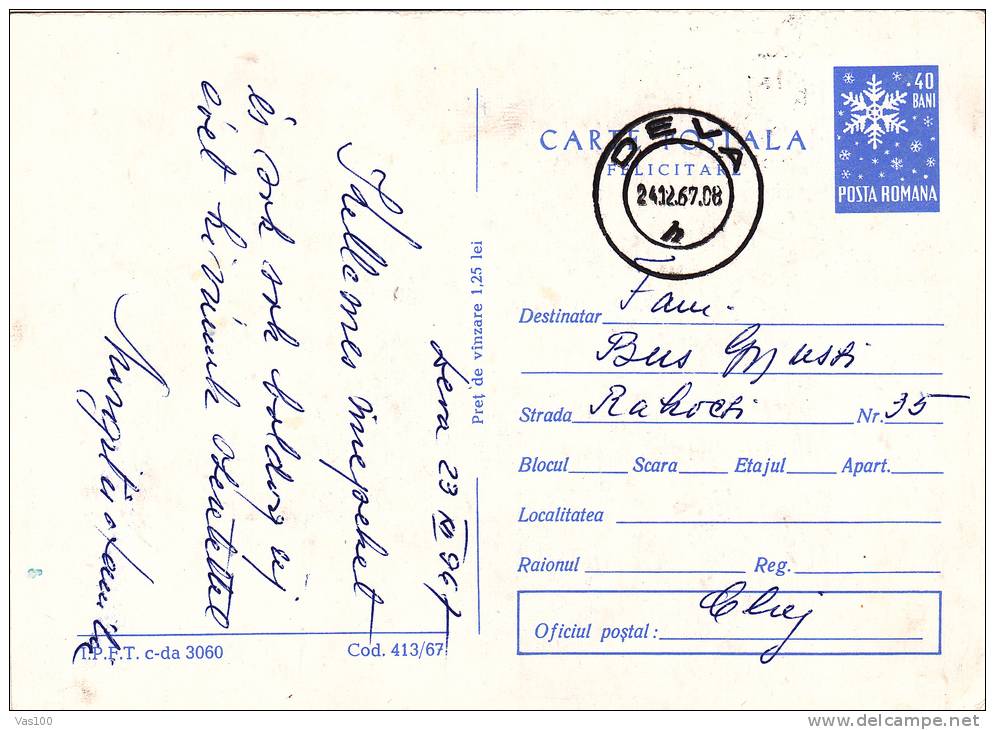 Deva 23 XII 967
Kellemes ünnepeket
és sok sok boldog új
évet kívánunk szeretettel
Margit és Család
Preţ de vînzare 1,25 lei
I.P.F.T. c-da 3060
Cod. 413/67
40
BANI
POSTA ROMANA
CARTE POSTALA
FELICITARE
DEVA
24.12.67.08
h
Destinatar Fam.
Bus Guszti
Strada Rakoczi Nr. 35
Blocul Scara Etajul Apart.
Localitatea
Raionul Reg.
Oficiul poştal: Cluj
Vas100
www.delcampe.net